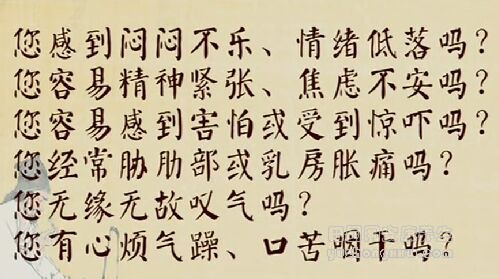 您感到闷闷不乐、情绪低落吗？
您容易精神紧张、焦虑不安吗？
您容易感到害怕或受到惊吓吗？
您经常胁肋部或乳房胀痛吗？
您无缘无故叹气吗？
您有心烦气躁、口苦咽干吗？